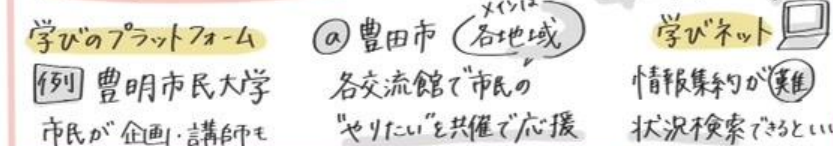 学びのプラットフォーム
例 豊明市民大学
市民が企画・講師も
@豊田市 メインは各地域
各交流館で市民の
"やりたい"を共催で応援
学びネット
情報集約が難
状況検索できるといい